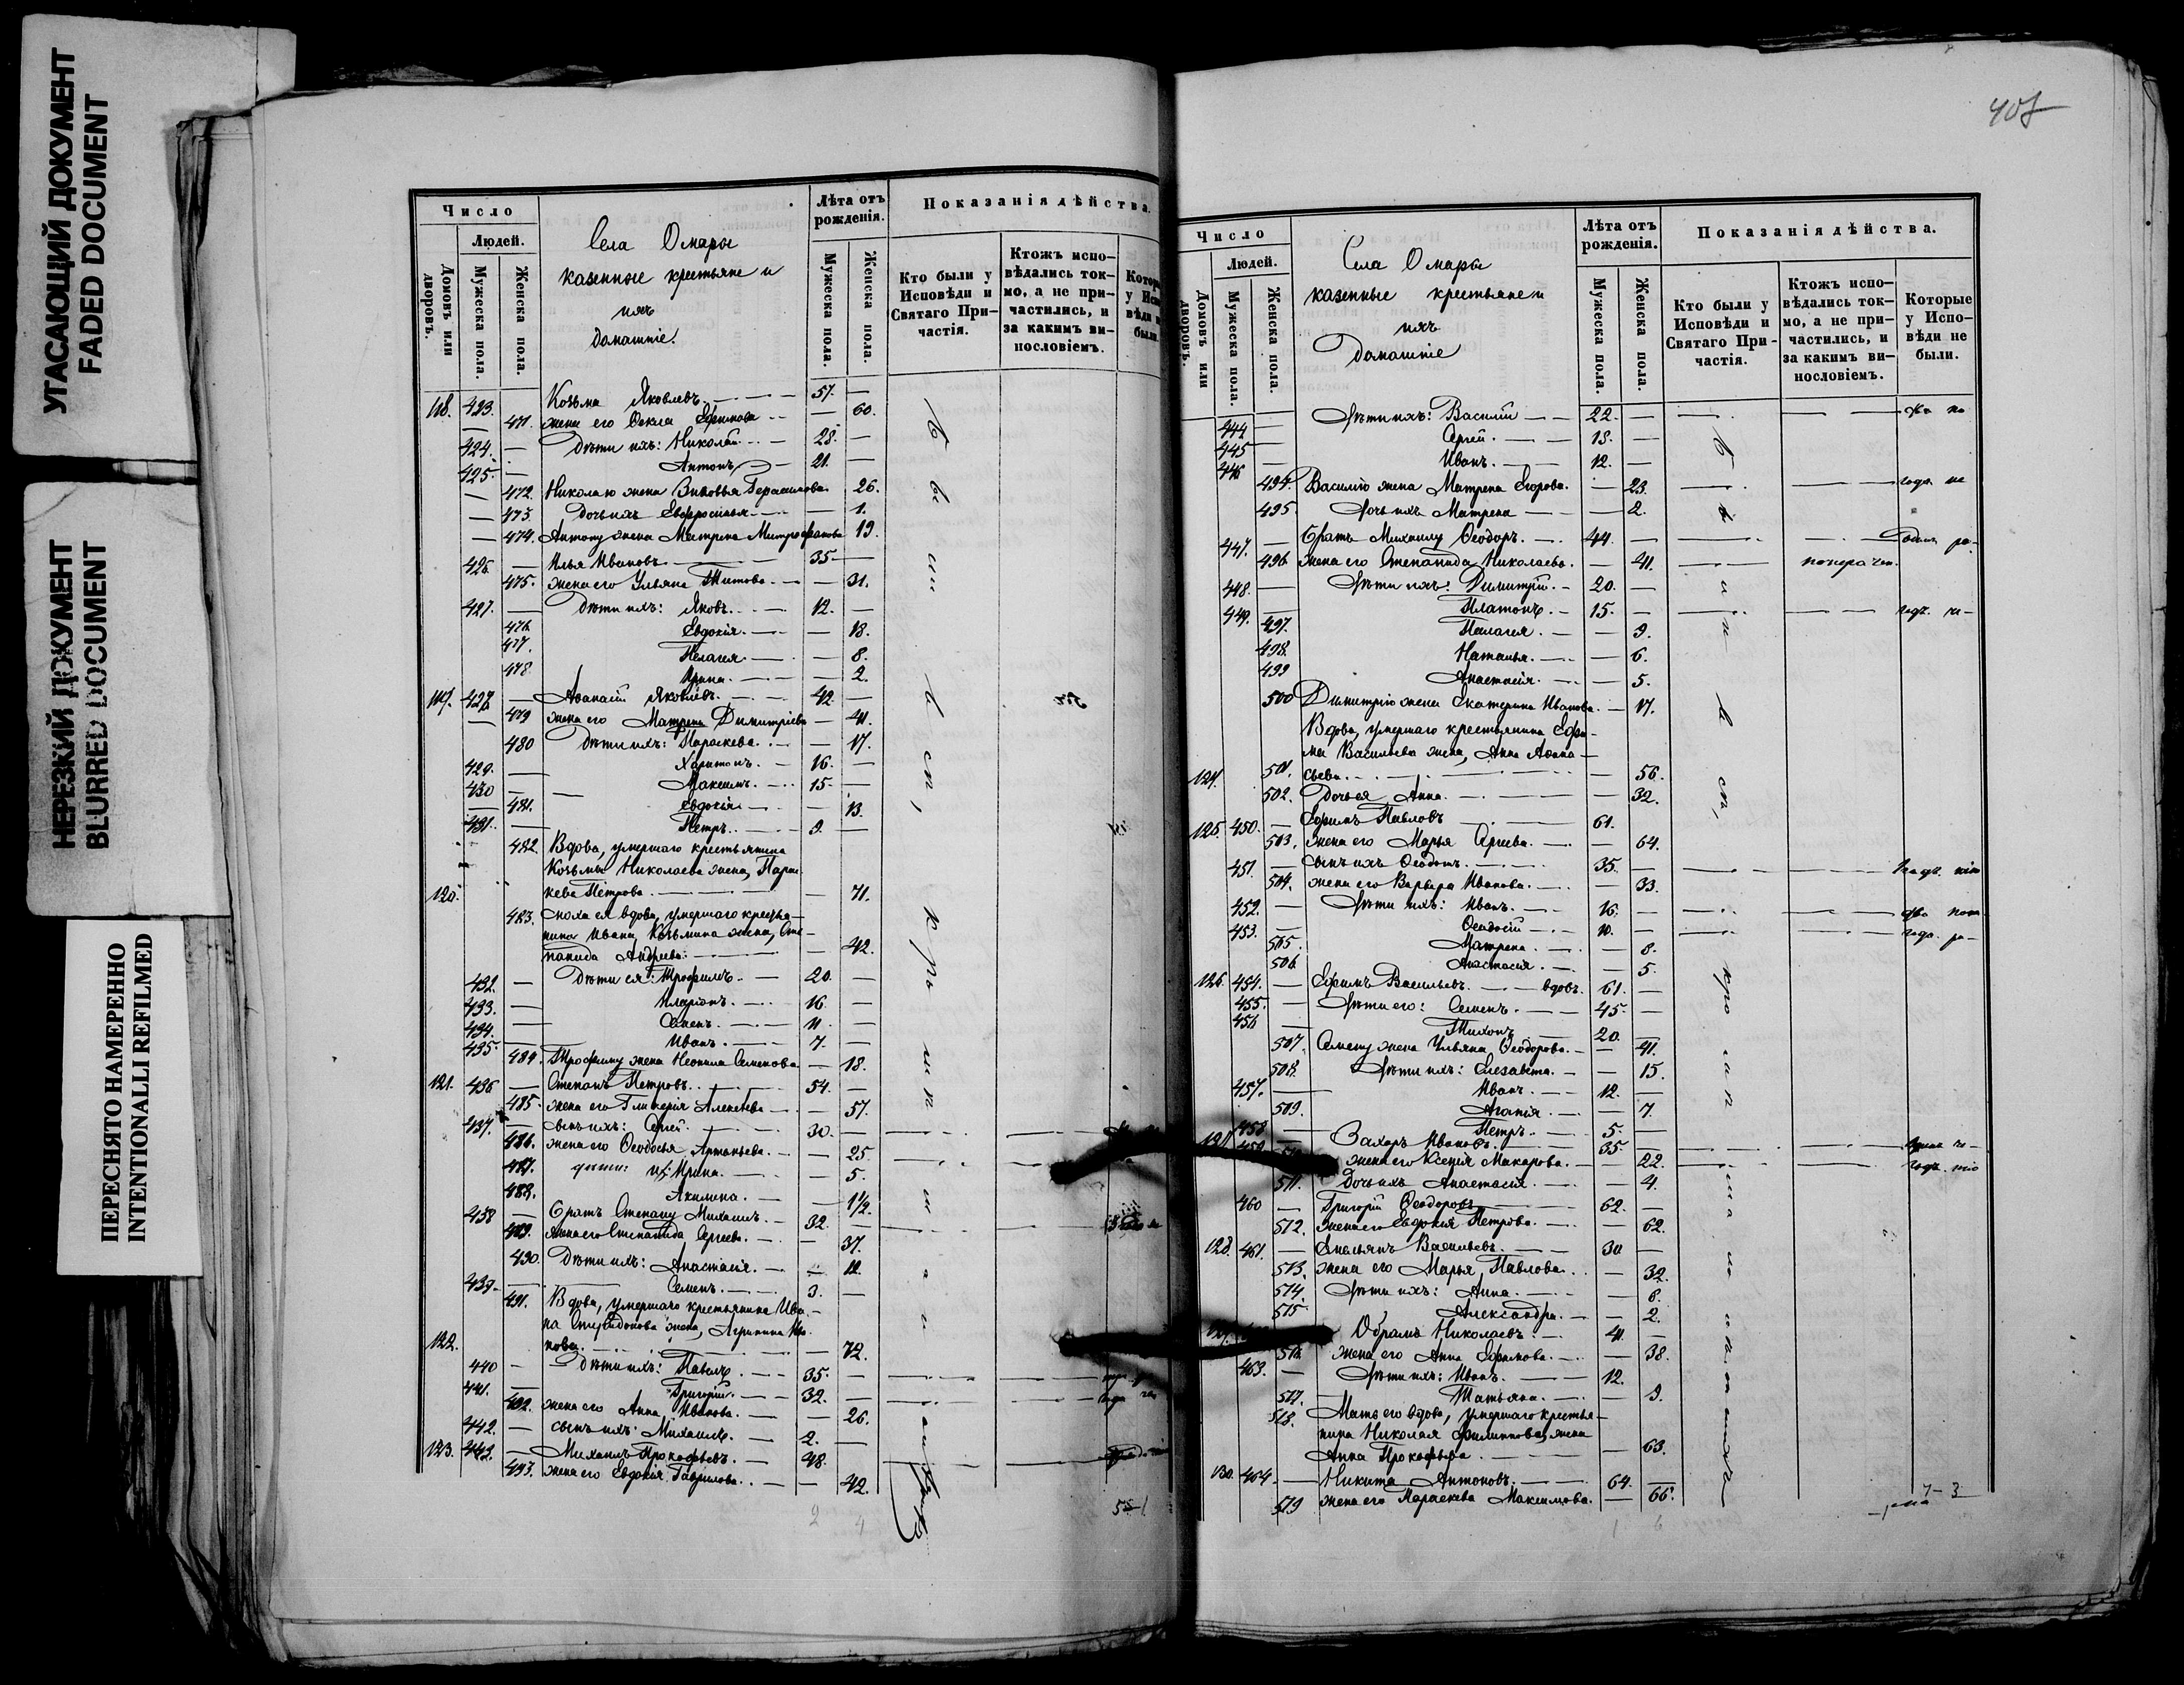 УГАСАЮЩИЙ ДОКУМЕНТ
FADED DOCUMENT
НЕРЕЗКИЙ ДОКУМЕНТ
BLURRED DOCUMENT
ПЕРЕСНЯТО НАМЕРЕННО
INTENTIONALLI REFILMED
Число
Людей.
Домовъ или дворовъ.
Мужеска пола.
Женска пола.
Села Омары
казенные крестьяне и
ихъ
домашніе.
Лѣта отъ рожденія.
Мужеска пола.
Женска пола.
Показанія дѣйства.
Кто были у Исповѣди и Святаго Причастія.
Ктожъ исповѣдались токмо, а не причастились, и за какимъ винословіемъ.
118. 423. Козьма Яковлевъ. 57. —
— 471. жена его Ѳекла Ефимова — 60.
424. — Дѣти ихъ: Николай 28. —
425. — Антонъ 21. —
— 472. Николаю жена Зиновья Герасимова 26.
— 473. Дочь ихъ Евфросинья — 1.
— 474. Антону жена Матрена Митрофанова 19.
426. — Илья Ивановъ 35 —
475. жена его Ульяна Титова — 31.
427. — Дѣти ихъ: Яковъ. 12. —
476. Евдокія. — 18.
477. Пелагея — 8.
478. Ирина. — 2.
119. 428 — Аѳанасій Яковлевъ. 42. —
— 479 жена его Матрена Димитріева — 41.
480 Дѣти ихъ: Параскева. — 17.
429. — Харитонъ. 16. —
430 — Максимъ. 15 —
— 481. Евдокія — 13.
431. — Петръ. 9. —
482. Вдова, умершаго крестьянина
Козьмы Николаева жена, Парас
120. кева Петрова. — 71.
483. сноха ея вдова, умершаго крестья—
нина Ивана Козьмина жена, Сте—
панида Андреева. — 42.
432. — Дѣти ея: Трофимъ. 20. —
433. — Иларіонъ. 16 —
434. — Семенъ. 11 —
435. — Иванъ. 7. —
484. Трофиму жена Неонила Семенова — 18.
121. 436 — Степанъ Петровъ. 54. —
485. жена его Гликерія Алексѣева — 57.
437. — сынъ ихъ: Сергей. 30. —
486. жена его Ѳеодосья Артемьева. — 25.
487. дѣти: их: Ирина. — 5.
488. Акилина. — 1½.
438 — Братъ Степану Михаилъ. 32. —
489. жена его Степанида Сергеева. — 37.
490. Дѣти ихъ: Анастасія. — 12.
439. — Семенъ. 3. —
491. Вдова, умершаго крестьянина Ива—
на Спиридонова жена, Агрипина
122. нова. — 72.
440 — Дѣти ихъ: Павелъ 35. —
441. — Григорій. 32. —
492. жена его Анна Иванова. — 26.
442. — сынъ ихъ: Михаилъ. 2. —
123. 443. — Михаилъ Прокофьевъ. 48. —
493. жена его Евдокія Гаврилова. — 42.
407
Число
Людей.
Домовъ или дворовъ.
Мужеска пола.
Женска пола.
Села Омары
казенные крестьяне и
ихъ
Домашніе
Лѣта отъ рожденія.
Мужеска пола.
Женска пола.
Показанія дѣйства.
Кто были у Исповѣди и Святаго Причастія.
Ктожъ исповѣдались токмо, а не причастились, и за какимъ винословіемъ.
Которые у Исповѣди не были.
444 — Дѣти ихъ: Василій 22. —
445 — Сергей. 18. —
446 — Иванъ. 12. —
494. Василію жена Матрена Егорова. — 23.
495. Дочь ихъ Матрена — 2.
447. — Братъ Михаилу Ѳеодоръ. 44. —
496. жена его Степанида Николаева. — 41.
448. — Дѣти ихъ: Димитрій. 20. —
449. — Платонъ. 15. —
497. Пелагея. — 9.
498. Наталья. — 6.
499 Анастасія. — 5.
500 Димитрію жена Екатерина Иванова. — 17.
Вдова, умершаго крестьянина Ефи—
ма Васильева жена, Анна Аѳана—
124. 501. сьева. — 56.
502. Дочь ея Анна. — 32.
125. 450. — Ефимъ Павловъ 61. —
503. жена его Марья Сергеева. — 64.
451. — сынъ ихъ Ѳеодотъ. 35. —
504. жена его Варвара Иванова. — 33.
452. — Дѣти ихъ: Иванъ. 16. —
453. — Ѳеодосій 10. —
505. Матрена. — 8.
506. Анастасія. — 5.
126. 454. — Ефимъ Васильевъ. вдовъ. 61. —
455. — Дѣти его: Семенъ. 45 —
456 — Тихонъ 20. —
507. Семену жена Ульяна Ѳеодорова. — 41.
508. Дѣти ихъ: Елезавета. — 15.
457. — Иванъ. 12. —
509. Агапія. — 7.
458 — Петръ. 5. —
127. 459. — Захаръ Ивановъ. 35. —
жена его Ксенія Макарова. — 22.
511. Дочь ихъ Анастасія. — 4.
460 — Григорій Ѳеодоровъ 62. —
512. жена его Евдокія Петрова. — 62.
128. 461. — Емельянъ Васильевъ. 30 —
513. жена его Марья Павлова. — 32.
514. Дѣти ихъ: Анна. — 6.
515. Александра. — 2.
Абрамъ Николаевъ. 41. —
516. жена его Анна Ефимова. — 38.
463. — Дѣти ихъ: Иванъ. 12. —
517. Татьяна. — 9.
518. Мать его вдова, умершаго крестья—
нина Николая Филиппова жена
Анна Прокофьева. — 63.
130. 464 — Никита Антоновъ. 64. —
519 жена его Параскева Максимова. — 66.